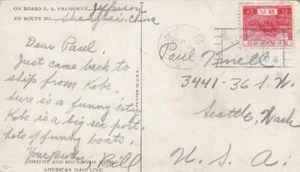 ON BOARD S. S. PRESIDENT Jefferson
EN ROUTE TO Shanghai, China
Dear Paul.
Just came back to
ship from Kobe.
sure is a funny city
Kobe is a big sea port.
lots of funny boats.
Your Brother Bill
ORIENT AND ROUND THE WORLD
AMERICAN MAIL LINE
Paul
3441-36 S.W.
Seattle, Wash
U. S. A.